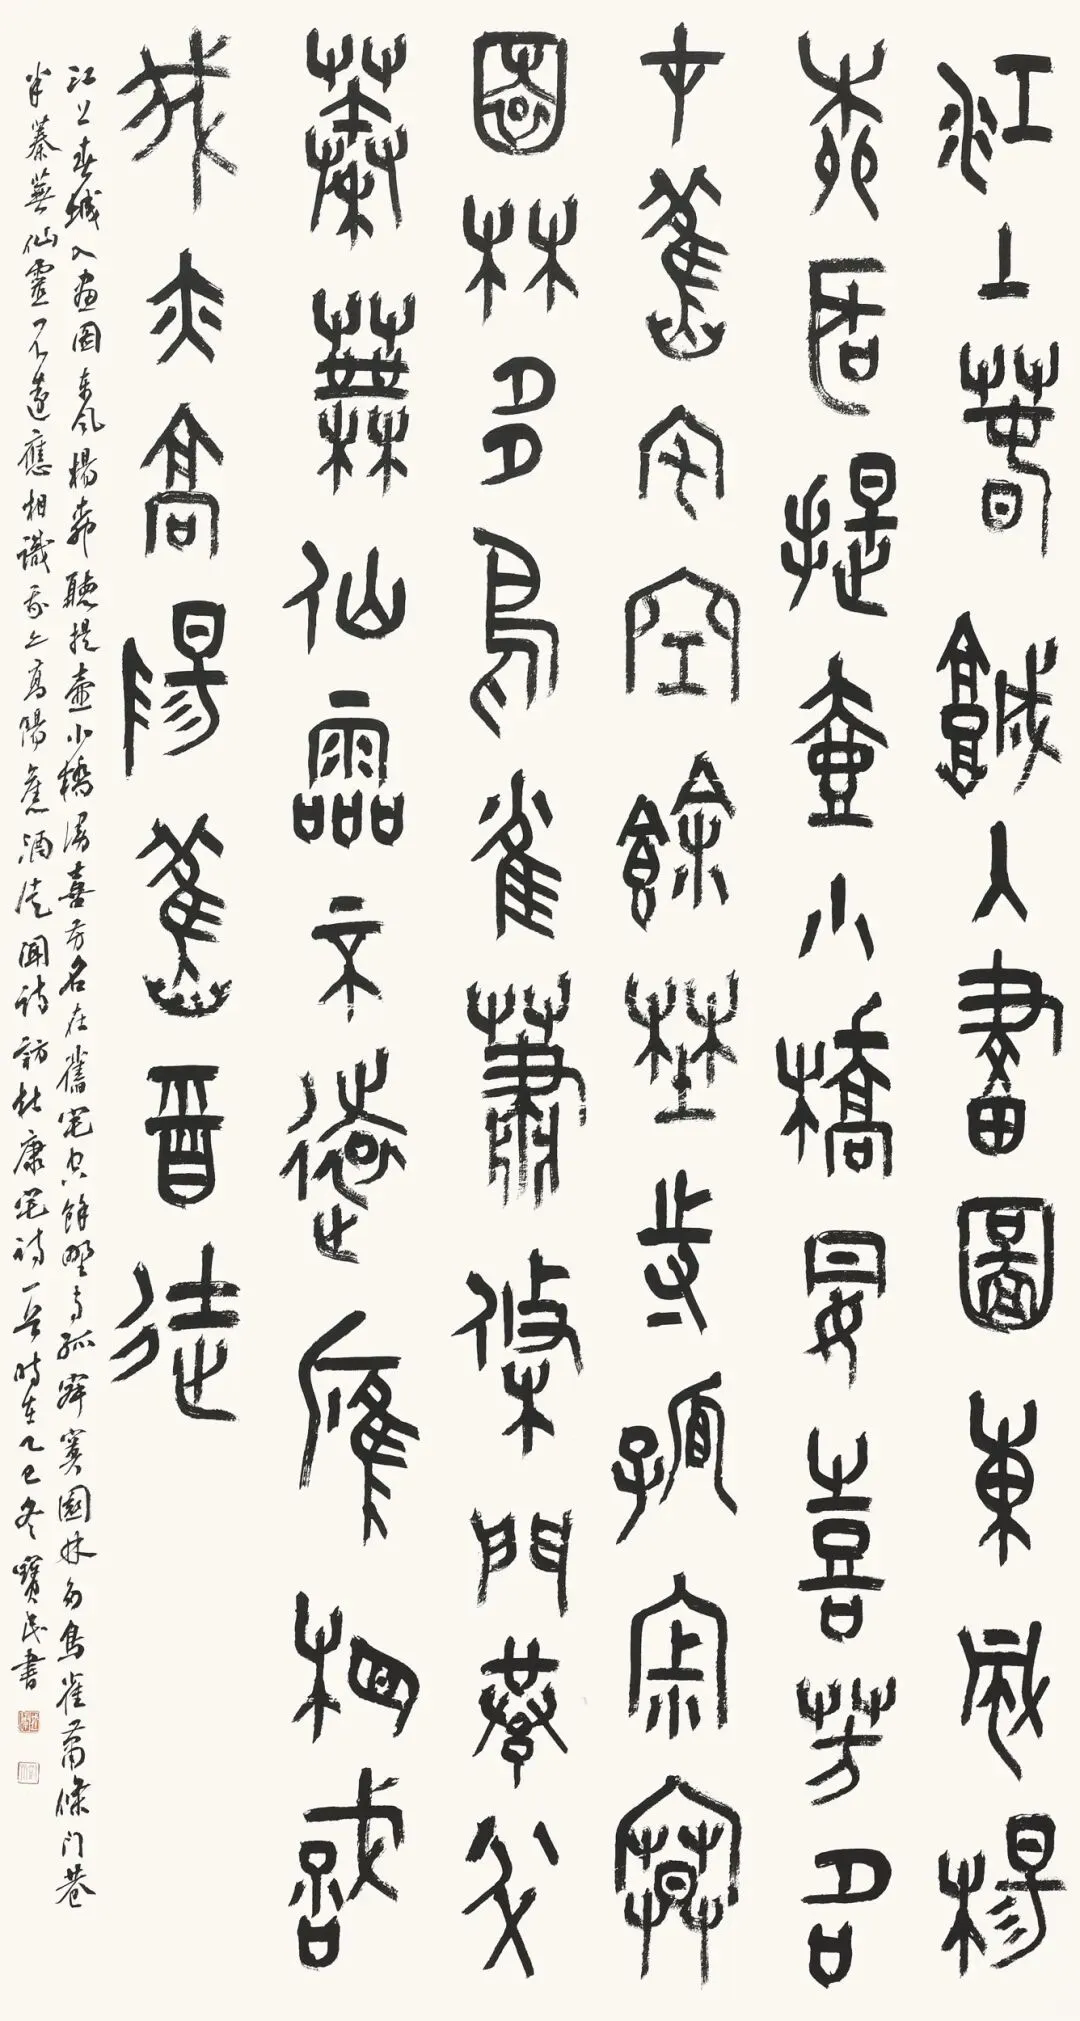 江上春城入畫圖東風楊
柳聽提壺小橋曼喜芳名
才舊宅空餘野步孤寂寞
園林多鳥雀蕭條門巷半
蓁蕪仙靈不遠應相識
我亦高陽舊酉徒
江上春城入畫图东风楊柳聽提壺小橋漫喜芳名在舊宅空餘野步孤寂寞園林多鳥雀蕭條门巷
半蓁蕪仙靈不遠應相識我亦高陽舊酒徒訪杜康宅詩一首時在乙巳冬寶民書